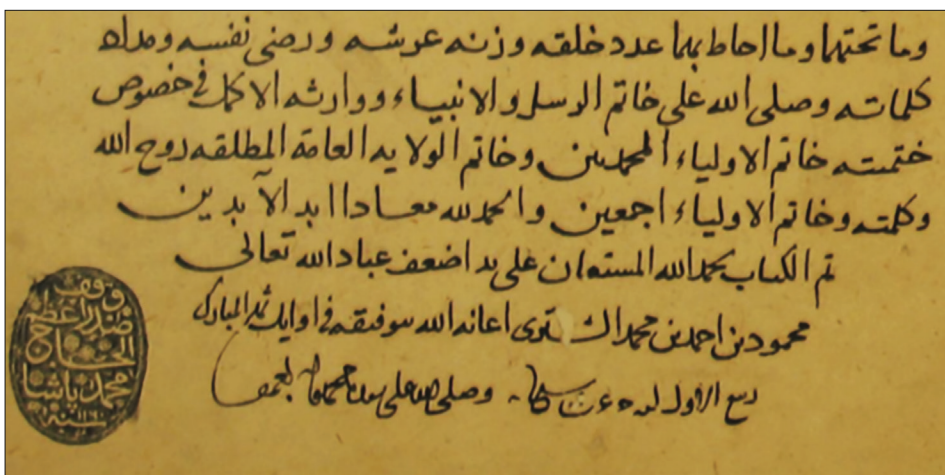 وما تحتهما وما احاط بهما عدد خلقه وزنه عرشه ورضى نفسه ومداد
كلماته وصلى الله على خاتم الرسل والانبياء ووارثه الاكمل في خصوص
ختمته خاتم الاولياء المحمديين وخاتم الولايه العامة المطلقه روح الله
وكلمته وخاتم الاولياء اجمعين والحمد لله معادا ابد الآبدين
تم الكتاب بحمد الله المستعان على يد اضعف عباد الله تعالى
محمود بن احمد بن محمد اعانه الله بتوفيقه في اوايل شهر المبارك
ربيع الاول وصلى الله على
وقف
صدر اعظم
الحاج
محمد باشا